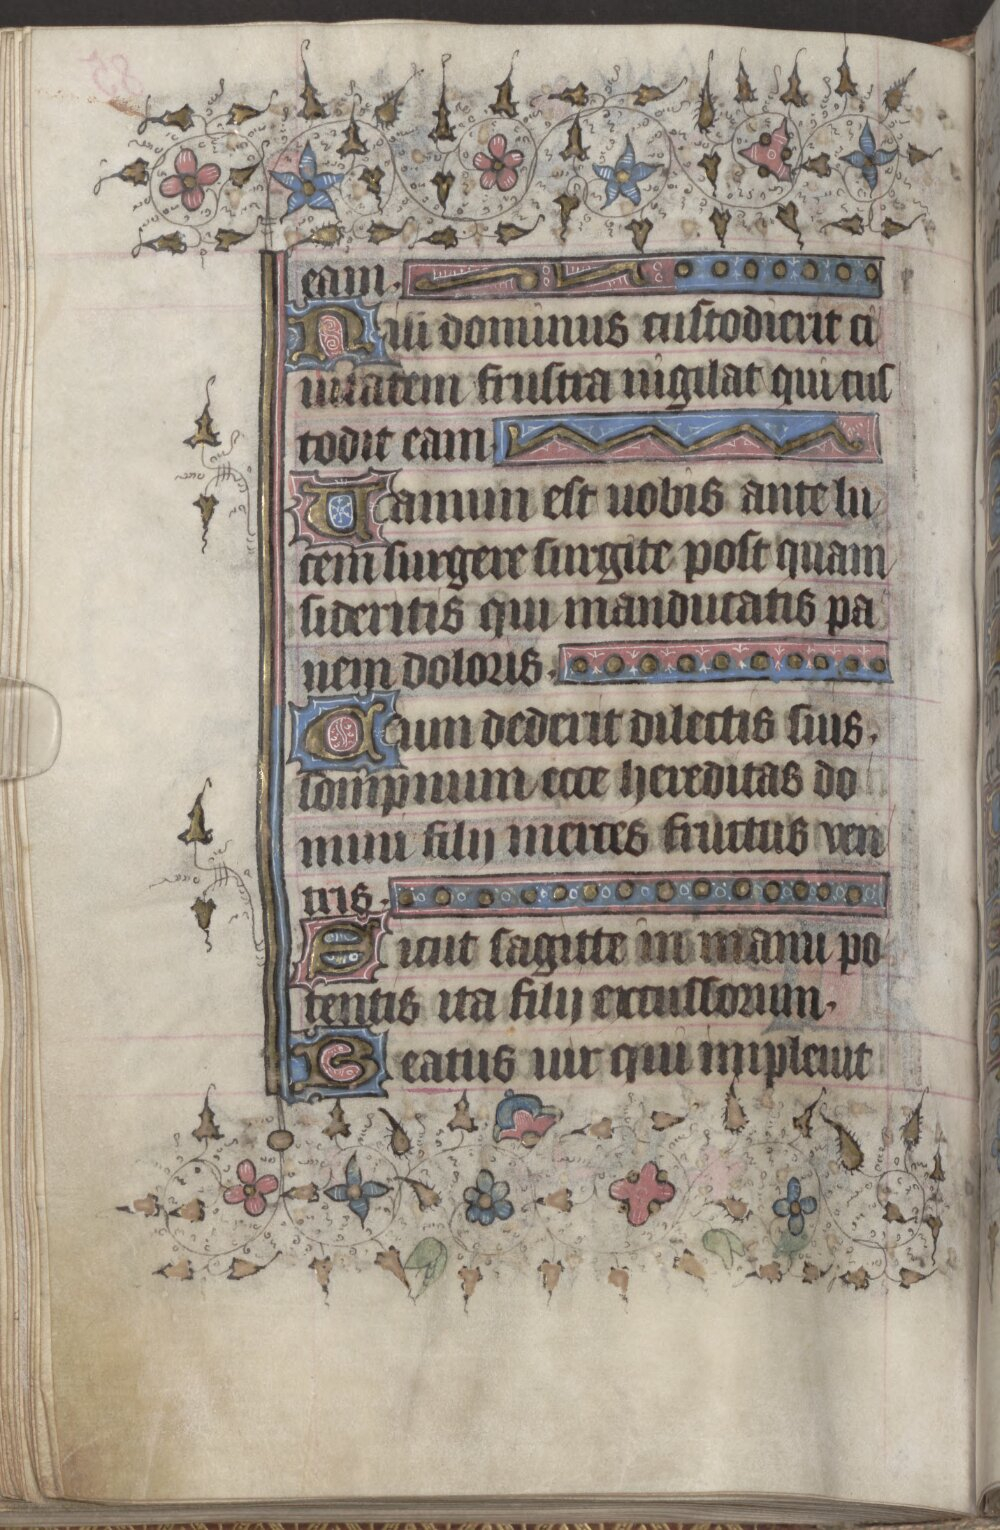 eam.
Nisi dominus custodierit ci
uitatem frustra uigilat qui cus
todit eam.
Uanum est uobis ante lu
cem surgere surgite post quam
sideritis qui manducatis pa
nem doloris.
Cum dederit dilectis suis.
sompnum ecce hereditas do
mini filij merces fructus ven
tris.
Sicut sagitte in manu po
tentis ita filij excussorum.
Beatus uir qui impleuit